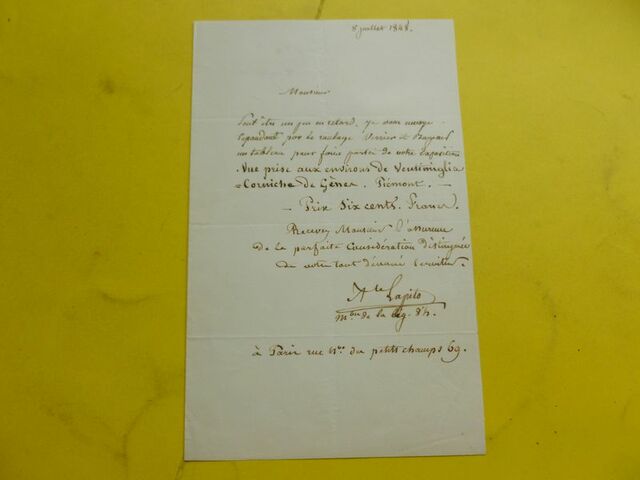 8 juillet 1848.
Monsieur
peut être un peu en retard, je vous envoye
cependant par le roulage Verrier et
un tableau pour faire partie de votre Exposition
Vue prise aux environs de Ventimiglia
Corniche de Gènes. Piémont.
— Prix Six cents. Francs.
Recevez Monsieur l'assurance
de la parfaite Considération distinguée
de votre tout dévoué serviteur.
Ate Lapito
mbre de la lég. d'h.
à Paris rue Nve des petits champs 69.